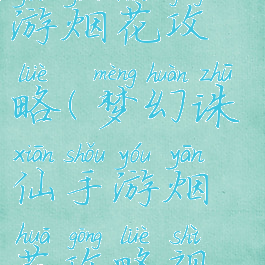 游烟花攻
lüè mèng huàn zhū
略(梦幻诛
xiān shǒu yóu yān
仙手游烟
huā gōng lüè shì
花攻略视